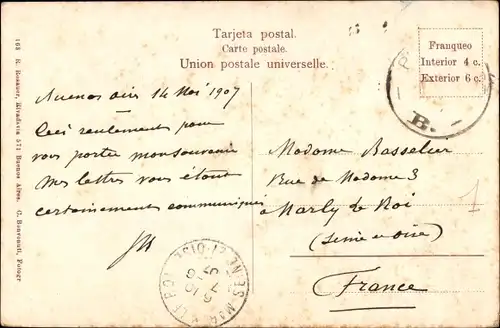 Tarjeta postal.
Carte postale.
Union postale universelle.
Franqueo
Interior 4 c.
Exterior 6 c.
B.
Buenos aires 14 Mai 1907
Ceci seulement pour
vous porter mon souvenir
Mes lettres vous étant
certainement communiquées
Madame Basselier
Rue de Madame 3
à Marly le Roi
(Seine et Oise)
France
1
MARLY LE ROI
SEINE-ET-OISE
163 R. Rosauer, Rivadavia 571 Buenos Aires. G. Bourquin,